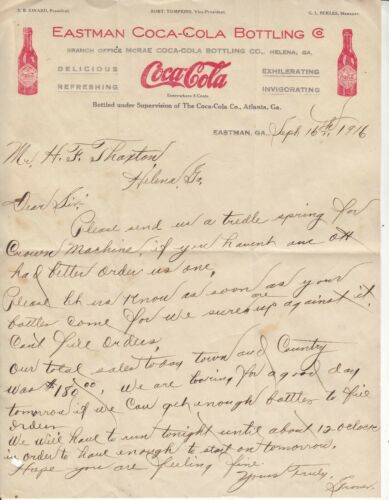 EASTMAN COCA-COLA BOTTLING Co
BRANCH OFFICE MCRAE COCA-COLA BOTTLING CO., HELENA, GA.
DELICIOUS
REFRESHING
Coca-Cola
Everywhere 5 Cents
EXHILERATING
INVIGORATING
Bottled under Supervision of The Coca-Cola Co., Atlanta, Ga.
EASTMAN, GA., Sept 16th, 1916
Mr. H. F. Thaxton,
Helena, Ga.
Dear Sir:
Please send us a tredle spring for
Crown Machine, if you havent one
had better order us one.
Please let us know as soon as your
bottles come for we are sure up against it.
Cant fill orders.
Our total sales today town and Country
was $180.00. We are looking for a good day
tomorrow if we can get enough bottles to fill
orders.
We will have to run tonight until about 12 oclock
in order to have enough to start on tomorrow.
Hope you are feeling fine
Yours truly,